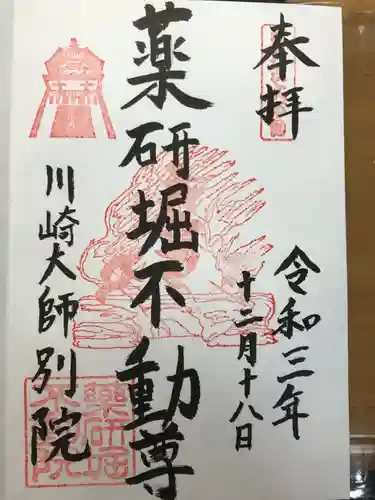 奉拝
令和三年
十二月十八日
薬研堀不動尊
川崎大師別院
薬研堀